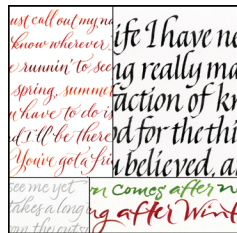 ust call out my na
know wherever
e runnin' to see
spring, summe
u have to do is
d I'll be there
You've got a fri
ife I have ne
ng really ma
faction of kn
d for the thi
u believed, a
see me yet
takes a long
n comes after w
ng after Wint